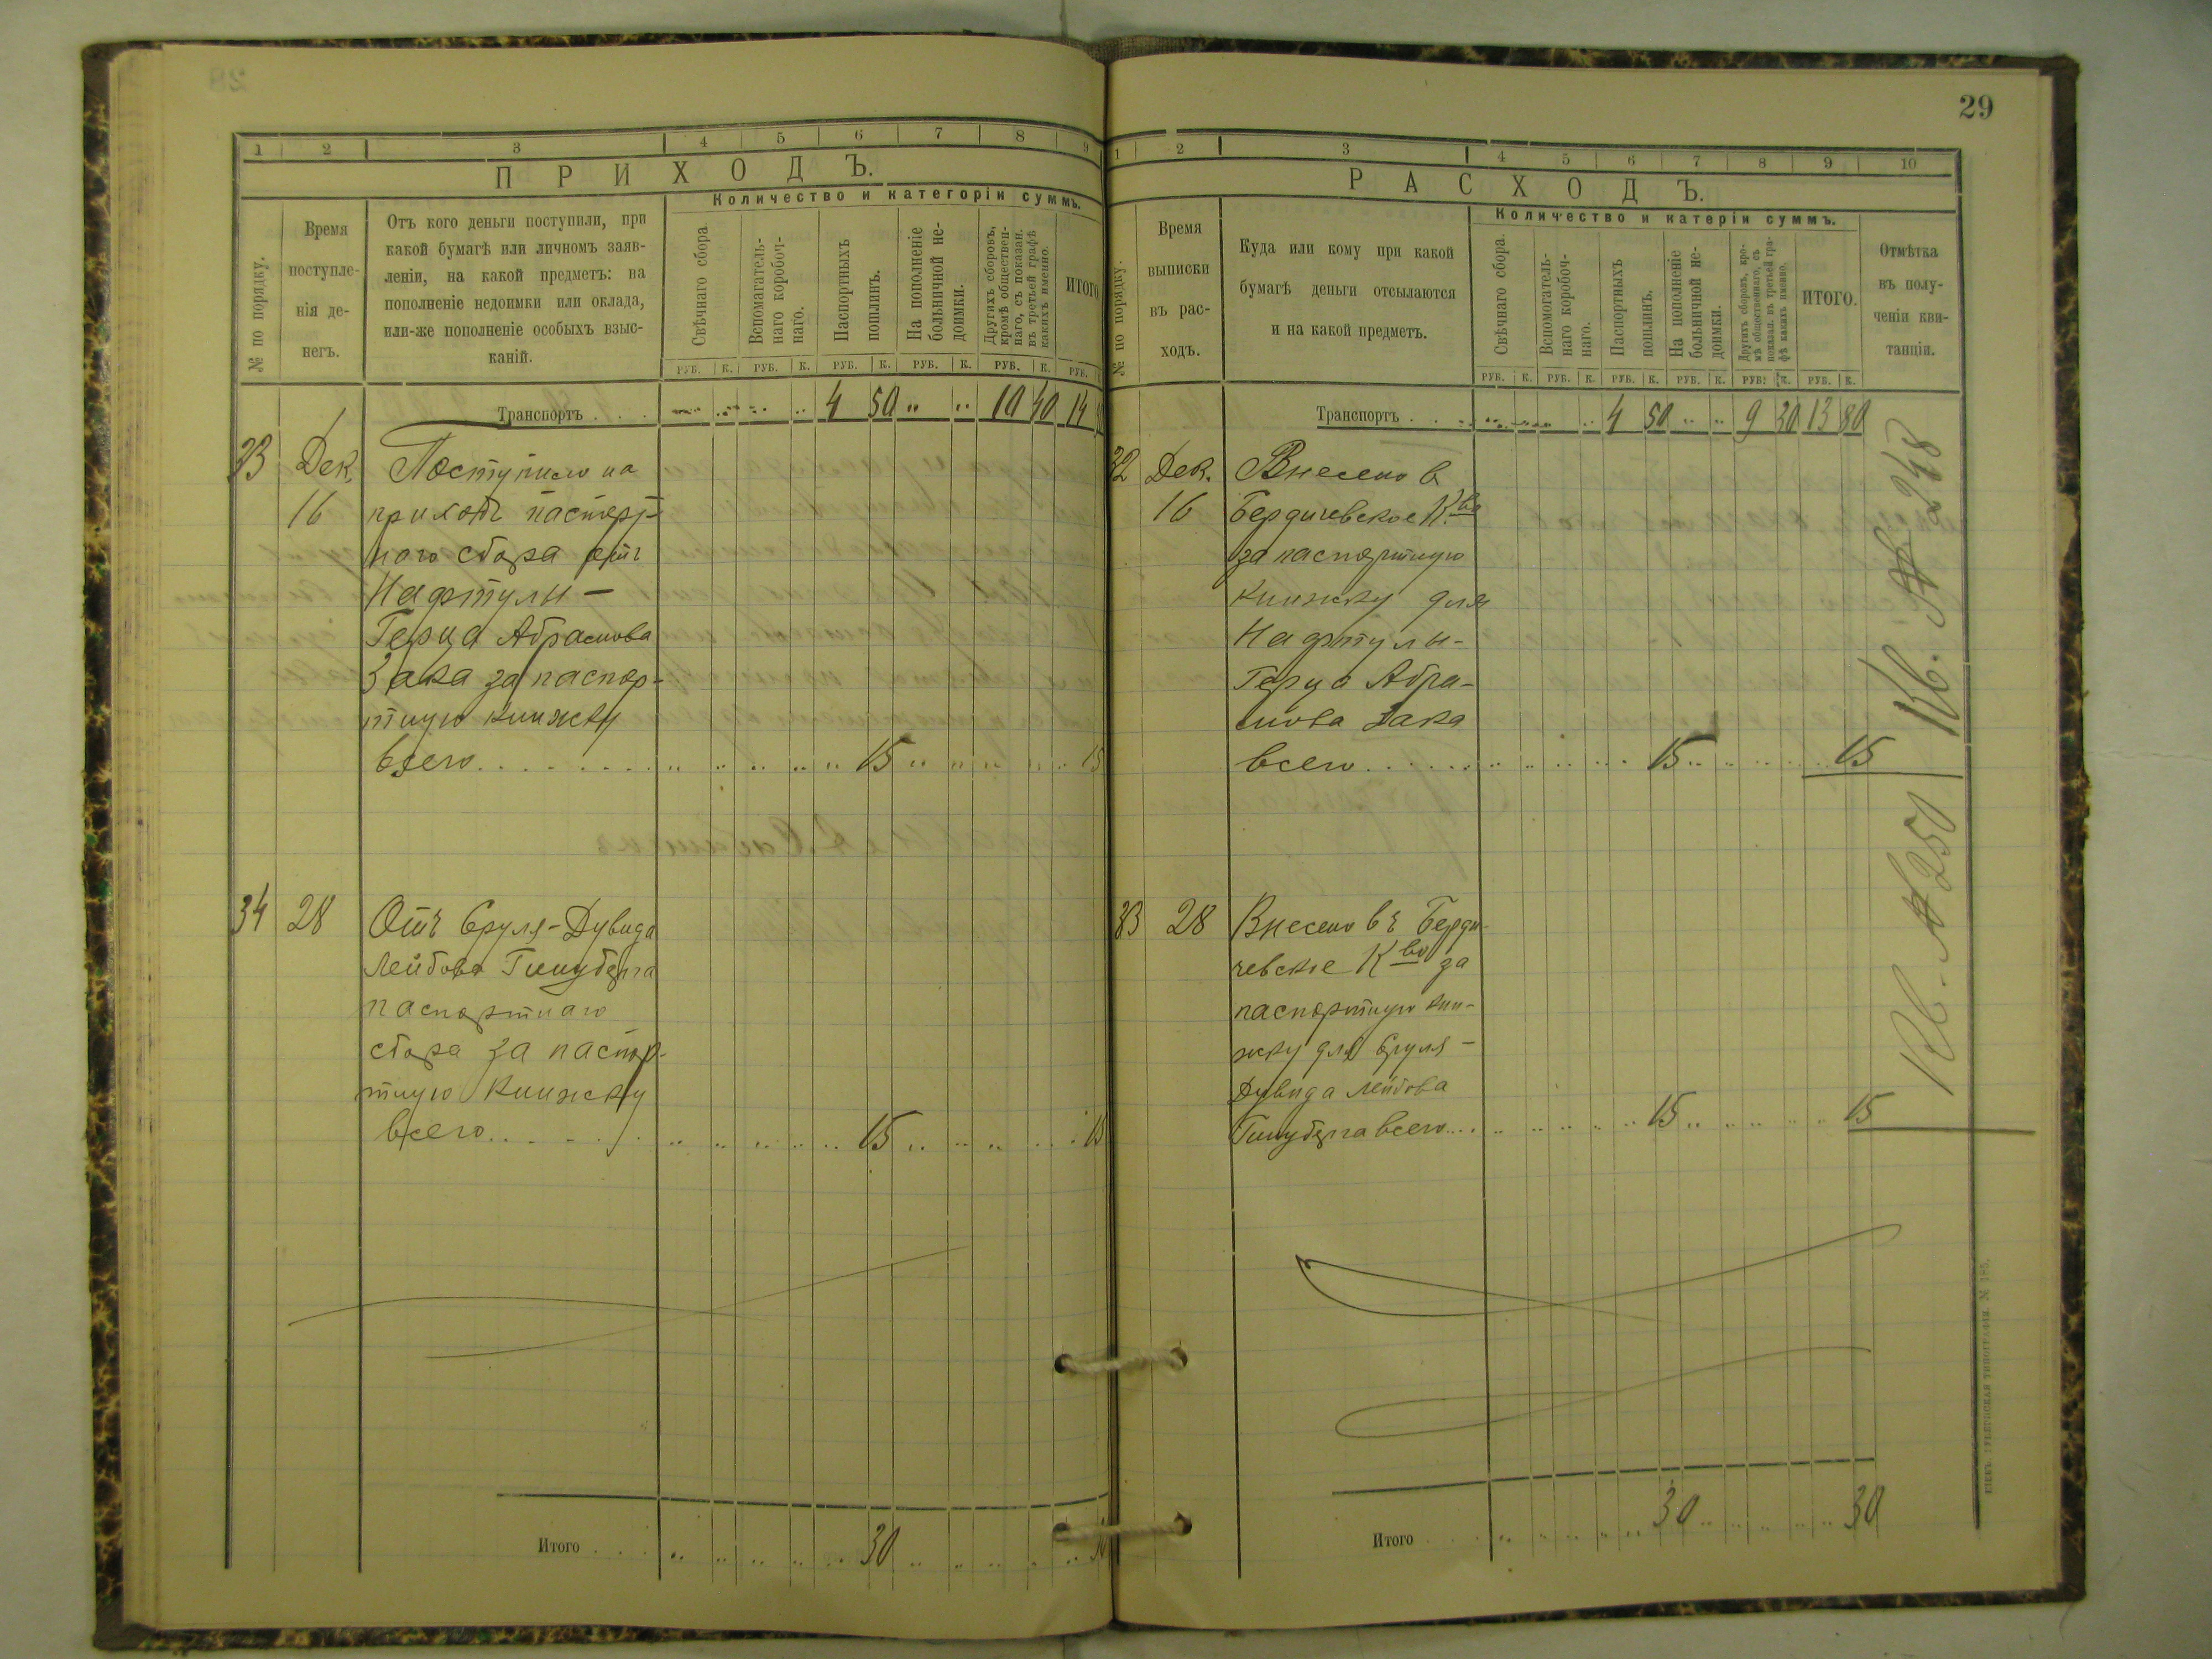 29
1 2 3 4 5 6 7 8 9
ПРИХОДЪ.
Количество и категоріи суммъ.
№ по порядку.
Время
поступле-
нія де-
негъ.
Отъ кого деньги поступили, при
какой бумагѣ или личномъ заяв-
леніи, на какой предметъ: на
пополненіе недоимки или оклада,
или-же пополненіе особыхъ взыс-
каній.
Свѣчнаго сбора
Вспомагатель-
наго коробоч-
наго.
Паспортныхъ
пошлинъ.
На пополненіе
больничной не-
доимки.
Другихъ сборовъ,
кромѣ обществен-
наго, съ показан.
въ третьей графѣ
какихъ именно.
ИТОГО
РУБ. К. РУБ. К. РУБ. К. РУБ. К. РУБ. К. РУБ.
Транспортъ . . . 4 50 10 40 14
33 Дек. Поступило на
16 приходъ паспорт-
ного сбора отъ
Нафтулы-
Герца Абрамова
Зака за паспор-
тную книжку
всего 15 15
34 28 Отъ Сруля-Дувида
Лейбова
паспортнаго
сбора за паспор-
тную книжку
всего 15 15
Итого . . . 30
1 2 3 4 5 6 7 8 9 10
РАСХОДЪ.
Количество и катеріи суммъ.
№ по порядку.
Время
выписки
въ рас-
ходъ.
Куда или кому при какой
бумагѣ деньги отсылаются
и на какой предметъ.
Свѣчнаго сбора.
Вспомогатель-
наго коробоч-
наго.
Паспортныхъ
пошлинъ.
На пополненіе
больничной не-
доимки.
Другихъ сборовъ, кро-
мѣ общественнаго, съ
показан. въ третьей гра-
фѣ какихъ именно.
ИТОГО.
Отмѣтка
въ полу-
ченіи кви-
танціи.
РУБ. К. РУБ. К. РУБ. К. РУБ. К. РУБ. К. РУБ. К.
Транспортъ . . 4 50 9 30 13 80
32 Дек. Внесено в
16 Бердичевское К-во
за паспортную
книжку для
Нафтулы-
Герца Абра-
мова Зака
всего 15 15
Кв. № 248
33 28 Внесено въ Берди-
чевское К-во за
паспортную кни-
жку для Сруля-
Дувида Лейбова
всего 15 15
Кв. № 250
Итого 30 30